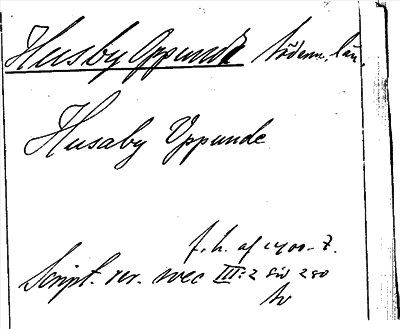 Husby Oppunda Söderm. län,
Husaby Uppunde
f.h. af 1400-t.
Script. rer. svec III:2 sid 280